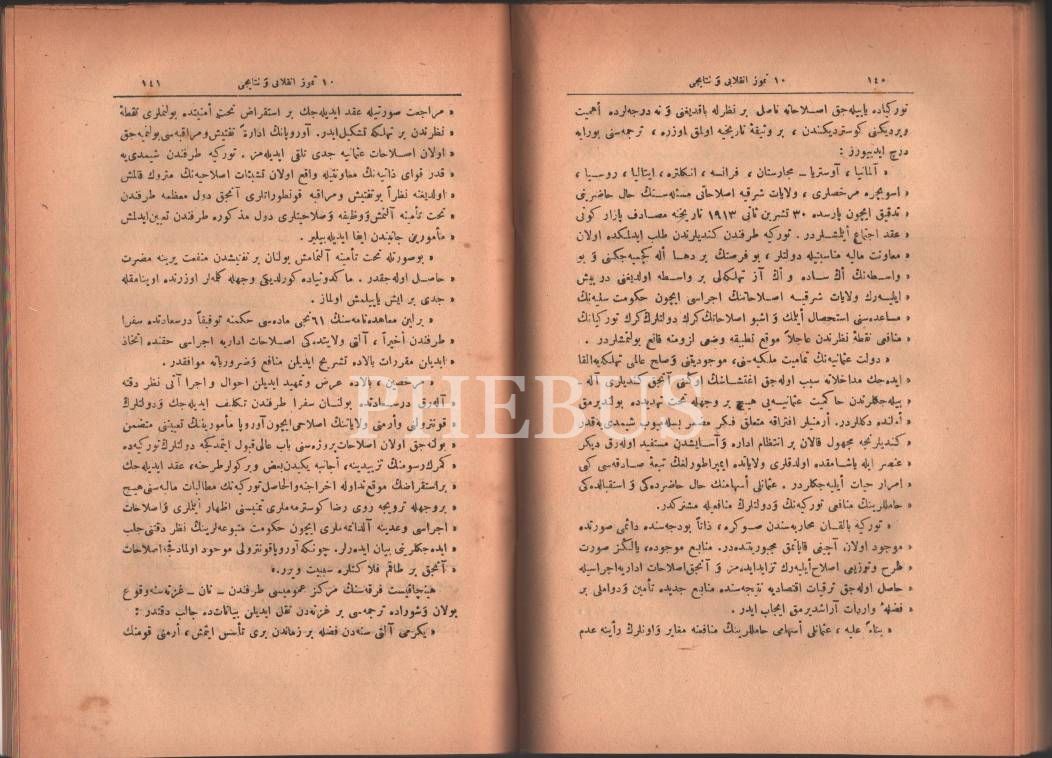 ١٤٠
١٠ تموز انقلابی و نتایجی
تورکیاده یاپیله‌جق اصلاحاته ناصل بر نظرله باقدیغنی و نه درجه‌لرده أهمیت
ویردیکنی کوستردیکندن ، بر وثیقهٔ تاریخیه اولمق اوزره ، ترجمه‌سنی بورایه
درج ایدییورز :
« آلمانیا ، آوستریا ـ مجارستان ، فرانسه ، انکلتره ، ایتالیا ، روسیا ،
« اسویچره مرخصلری ، ولایات شرقیه اصلاحاتی مسئله‌سنك حال حاضرینی
« تدقیق ایچون پارسده ٣٠ تشرین ثانی ١٩١٣ تاریخنه مصادف پازار کونی
« عقد اجتماع أیلمشلردر . تورکیه طرفندن کندیلرندن طلب ایدلمکده اولان
« معاونت مالیه مناسبتیله دولتلر ، بو فرصتك بر دها أله کچمیه‌جکنی و بو
« واسطه‌نك أك ساده و أك آز تهلکه‌لی بر واسطه اولدیغنی درپیش
« ایلیه‌رك ولایات شرقیه اصلاحاتنك اجراسی ایچون حکومت سنیه‌نك
« مساعده‌سنی استحصال أیلمك و اشبو اصلاحاتك کرك دولتلرك کرك تورکیانك
« منافعی نقطهٔ نظرندن عاجلاً موقع تطبیقه وضعی لزومنه قانع بولنمشلردر .
« دولت عثمانیه‌نك تمامیت ملکیه‌سنی ، موجودیتنی و صلح عالمی تهلکه‌یه القا
« ایده‌جك مداخلاته سبب اوله‌جق اغتشاشك اوکنی آنجق کندیلری آله
« بیله‌جکلرندن حاکمیت عثمانیه‌یی هیچ بر وجهله تحت تهدیدده بولندیرمق
« أملنده دکلردر. أرمنیلر افتراقه متعلق فکر مضمر بسله‌میوب شیمدی‌یه‌قدر
« کندیلرنجه مجهول قالان بر انتظام اداره و آسایشدن مستفید اوله‌رق دیکر
« عنصر ایله یاشامقده اولدقلری ولایاتده ایمپراطورلغك تبعهٔ صادقه‌سی کبی
« امرار حیات أیلیه‌جکلردر . عثمانلی أسهامنك حال حاضرده‌کی و استقبالده‌کی
« حاملرینك منافعی تورکیه‌نك و دولتلرك منافعیله مشترکدر.
« تورکیه بالقان محاربه‌سندن صوکره ، ذاتاً بودجه‌سنده دائمی صورتده
« موجود اولان آچیغی قاپاتمق مجبوریتنده‌در. منابع موجوده، یالکز صورت
« طرح و توزیعی اصلاح أیلیه‌رك تزاید ایده‌مز و آنجق اصلاحات اداریه اجراسیله
« حاصل اوله‌جق ترقیات اقتصادیه نتیجه‌سنده منابع جدیده تأمین و دواملی بر
« فضلهٔ واردات آراشدیرمق ایجاب ایدر .
« بناءً علیه ، عثمانلی أسهامی حاملرینك منافعنه مغایر و اونلرك رأینه عدم
١٠ تموز انقلابی و نتایجی
١٤١
« مراجعت صورتیله عقد ایدیله‌جك بر استقراض تحت أمنیتده بولنملری نقطهٔ
« نظرندن بر تهلکه تشکیل ایدر. آوروپانك ادارهٔ تفتیش و مراقبه‌سی بولنمیه‌جق
« اولان اصلاحات عثمانیه جدی تلقی ایدیله‌مز . تورکیه طرفندن شیمدی‌یه
« قدر قوای ذاتیه‌نك معاونتیله واقع اولان تشبثات اصلاحیه‌نك متروك قالمش
« اولدیغنه نظراً بو تفتیش و مراقبه قونطوراتلری آنجق دول معظمه طرفندن
« تحت تأمینه آلنمش و وظیفه و صلاحیتلری دول مذکوره طرفندن تعیین ایدلمش
« مأمورین جانبندن ایفا ایدیله‌بیلیر .
« بوصورتله تحت تأمینه آلنمامش بولنان بر تفتیشدن منفعت یرینه مضرت
« حاصل اوله‌جقدر . ماکدونیاده کورلدیکی وجهله کلمه‌لر اوزرنده اوینامقله
« جدی بر ایش یاپیلمش اولماز .
« برلین معاهده‌نامه‌سنك ٦١ نجی ماده‌سی حکمنه توفیقاً درسعادتده سفرا
« طرفندن أخیراً ، آلتی ولایتده‌کی اصلاحات اداریه اجراسی حقنده اتخاذ
« ایدیلن مقررات بالاده تشریح ایدیلن منافع و ضروریاته موافقدر .
« مرخصین ، بالاده عرض و تمهید ایدیلن احوال و اجرا آتی نظر دقته
« آله‌رق درسعادتده بولنان سفرا طرفندن تکلیف ایدیله‌جك و دولتلرك
« قونترولی و أرمنی ولایاتنك اصلاحی ایچون آوروپا مأمورینك تعییننی متضمن
« بوله‌جق اولان اصلاحات پروژه‌سنی باب عالی قبول ایتمدکجه دولتلرك تورکیه‌ده
« کمرك رسومنك تزییدینه، أجانبه یکیدن بعض ویرکولر طرحنه، عقد ایدیله‌جك
« بر استقراضك موقع تداوله اخراجنه والحاصل تورکیه‌نك مطالبات مالیه‌سنی هیچ
« بر وجهله ترویجه روی رضا کوسترمه‌ملری تمنیسنی اظهار أیتملری و اصلاحات
« اجراسی وعدینه آلدانمه‌ملری ایچون حکومت متبوعه‌لرینك نظر دقتنی جلب
« ایده‌جکلرینی بیان ایدرلر. چونکه آوروپا قونترولی موجود اولمادقجه اصلاحات
« آنجق بر طاقم فلاکتلره سببیت ویرر.»
هینچاقیست فرقه‌سنك مرکز عمومیسی طرفندن ـ تان ـ غزته‌سنه وقوع
بولان و شوراده ترجمه‌سی بر غزته‌دن نقل ایدیلن بیاناتده جالب دقتدر :
« یکرمی آلتی سنه‌دن فضله بر زماندن بری تأسس ایتمش ، أرمنی قومنك
PHEBUS